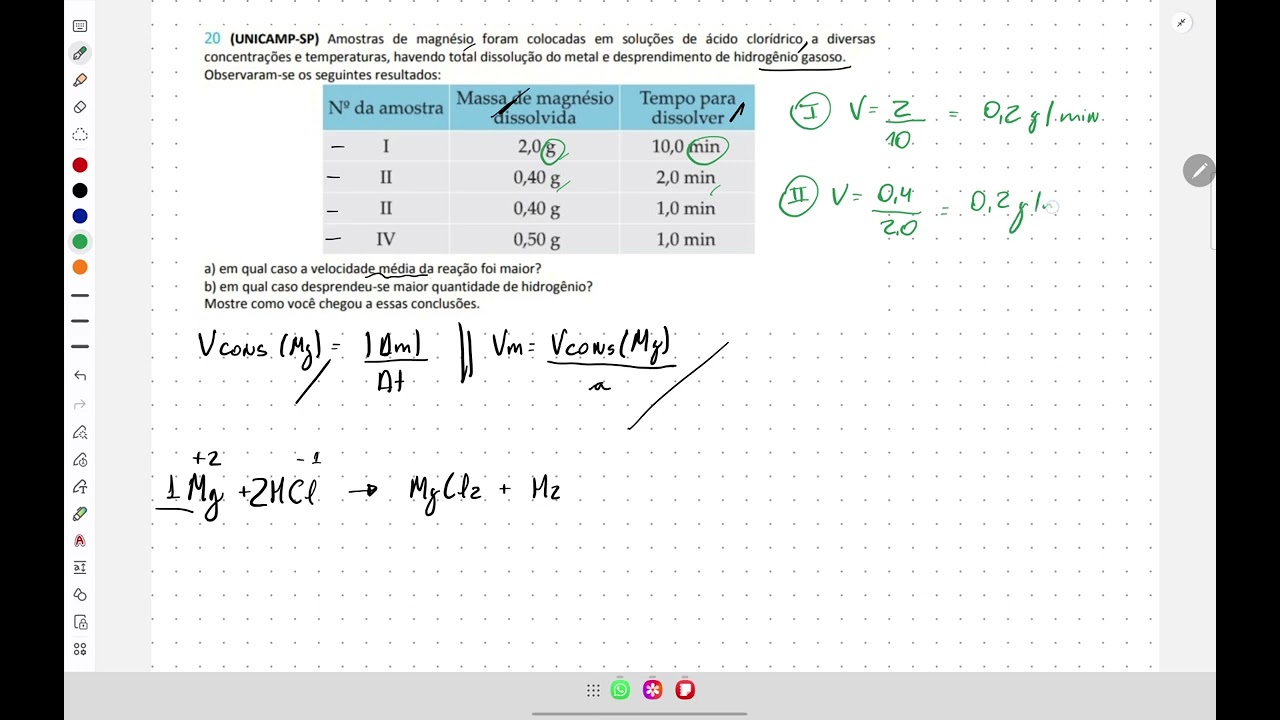 20 (UNICAMP-SP) Amostras de magnésio foram colocadas em soluções de ácido clorídrico a diversas
concentrações e temperaturas, havendo total dissolução do metal e desprendimento de hidrogênio gasoso.
Observaram-se os seguintes resultados:
Nº da amostra Massa de magnésio dissolvida Tempo para dissolver
I 2,0 g 10,0 min
II 0,40 g 2,0 min
II 0,40 g 1,0 min
IV 0,50 g 1,0 min
a) em qual caso a velocidade média da reação foi maior?
b) em qual caso desprendeu-se maior quantidade de hidrogênio?
Mostre como você chegou a essas conclusões.
I V = 2/10 = 0,2 g/min.
II V = 0,4/2,0 = 0,2 g/
Vcons (Mg) = |Δm|/Δt || Vm = Vcons(Mg)/a
+2 -1
1Mg + 2HCl → MgCl2 + H2